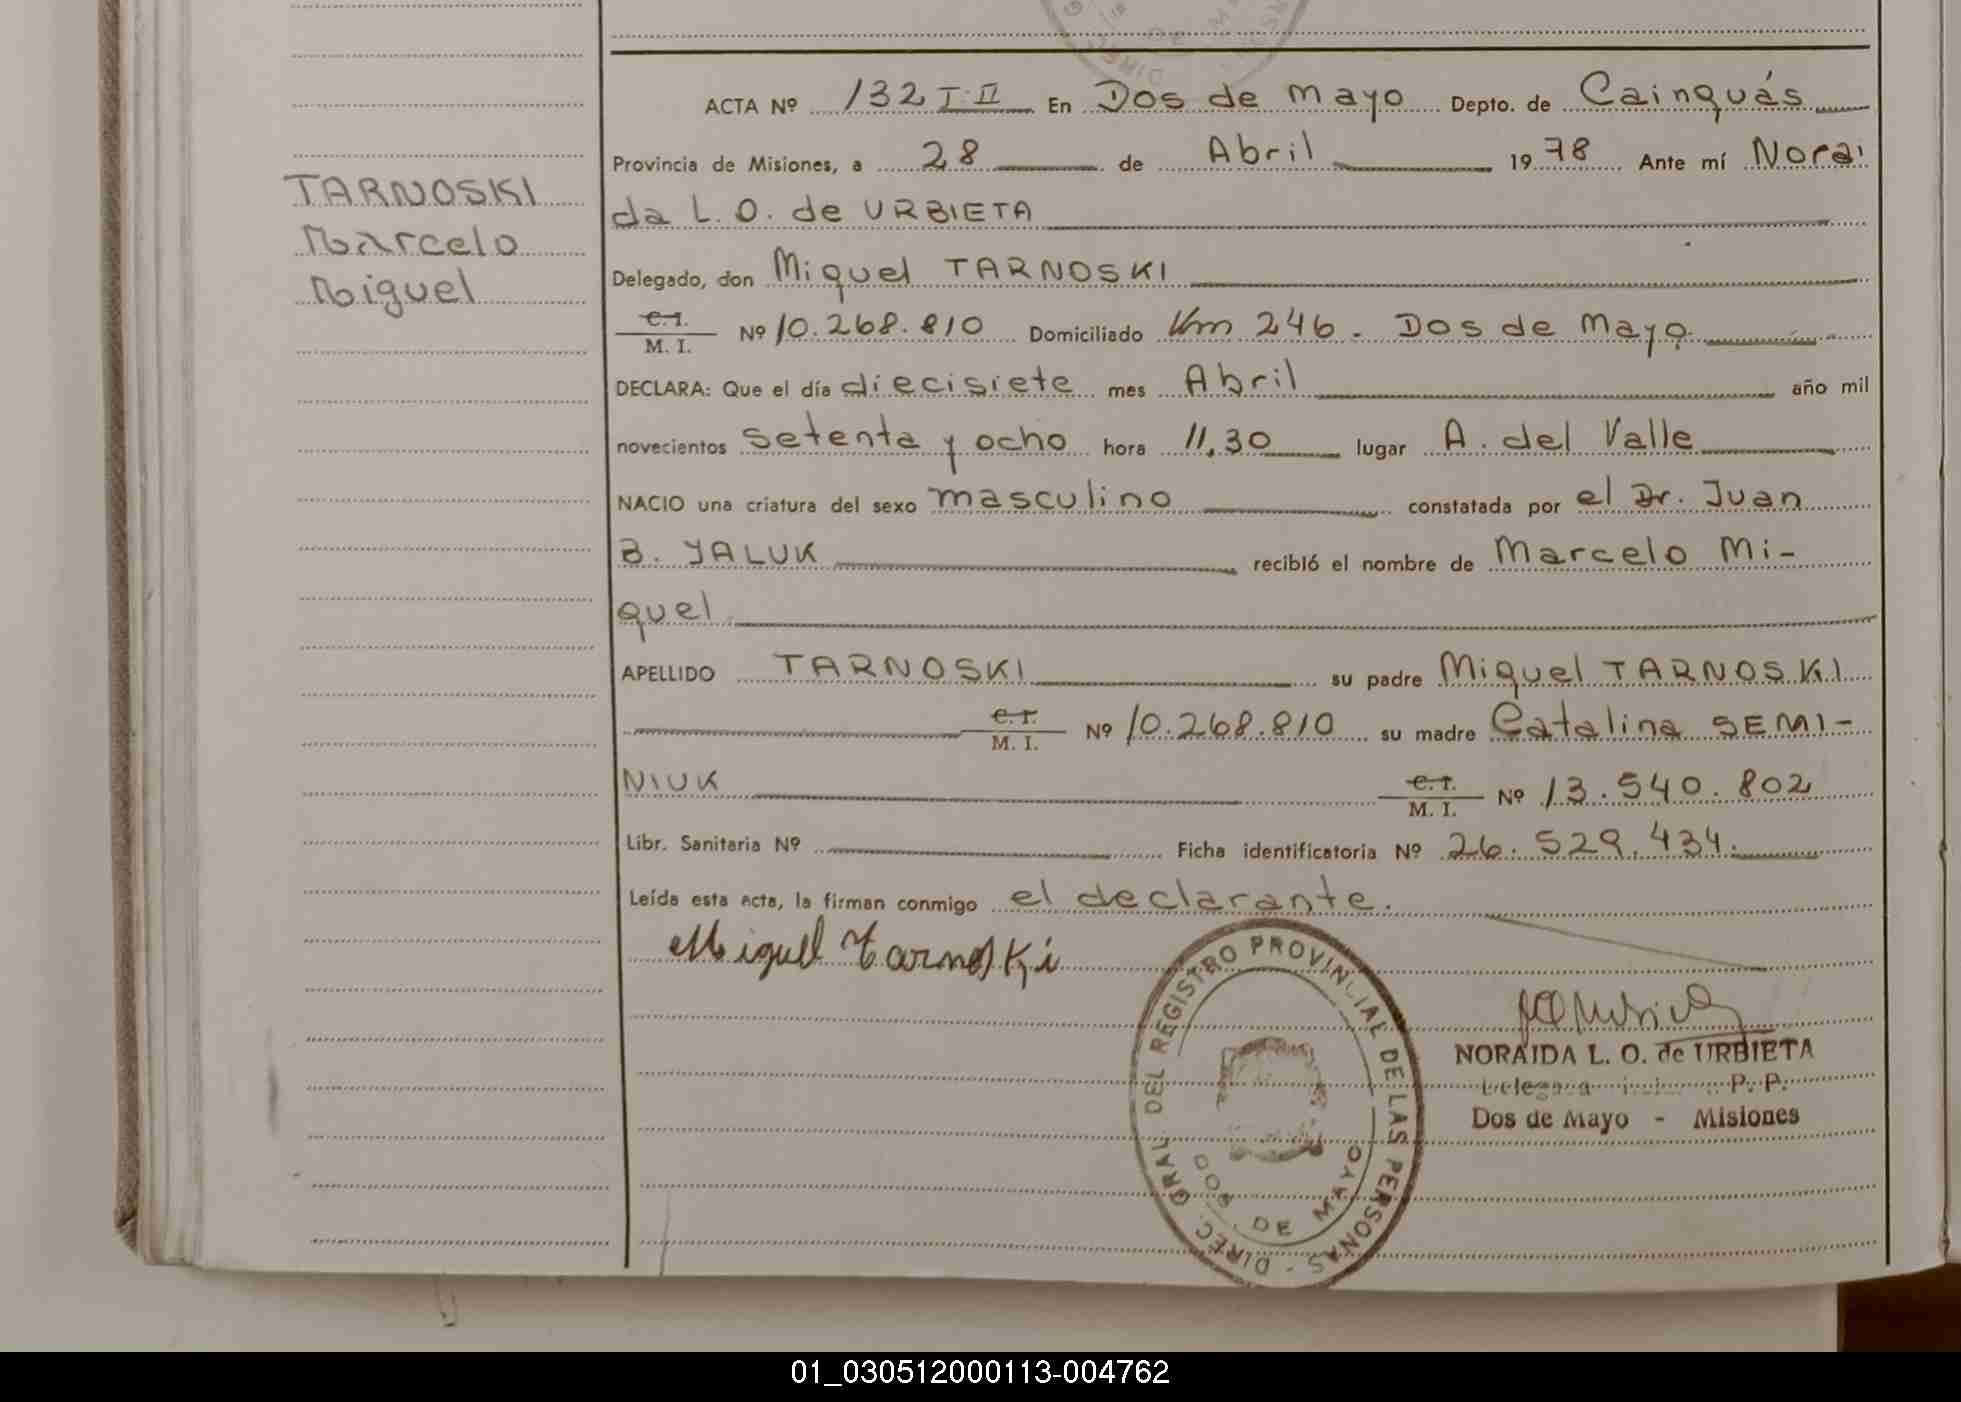 TARNOSKI
Marcelo
Miguel
ACTA Nº 132 T·II En Dos de Mayo Depto. de Cainguás
Provincia de Misiones, a 28 de Abril 1978 Ante mí Norai
da L. O. de URBIETA
Delegado, don Miguel TARNOSKI
C.I. / M. I. Nº 10.268.810 Domiciliado Km 246. Dos de Mayo
DECLARA: Que el día diecisiete mes Abril año mil
novecientos setenta y ocho hora 11,30 lugar A. del Valle
NACIO una criatura del sexo masculino constatada por el Dr. Juan
B. YALUK recibió el nombre de Marcelo Mi-
guel
APELLIDO TARNOSKI su padre Miguel TARNOSKI
C.I. / M. I. Nº 10.268.810 su madre Catalina SEMI-
NIUK C.I. / M. I. Nº 13.540.802
Libr. Sanitaria Nº Ficha identificatoria Nº 26.529.434.
Leída esta acta, la firman conmigo el declarante.
Miguel Tarnoski
DIREC. GRAL. DEL REGISTRO PROVINCIAL DE LAS PERSONAS -
DOS DE MAYO
NORAIDA L. O. de URBIETA
P. P.
Dos de Mayo - Misiones
01_030512000113-004762